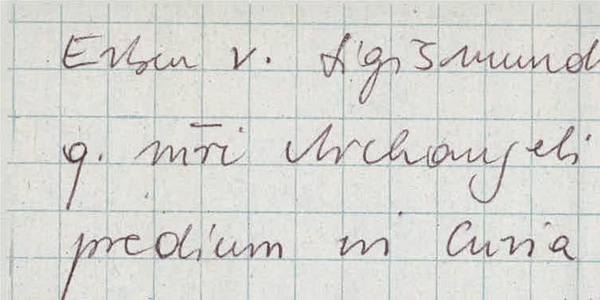 Erben v. Sigismund
q. mri Archangeli
predium in Curia